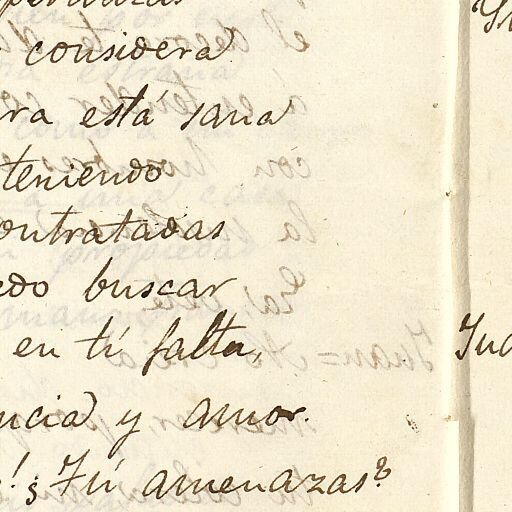 considera
ra está sana
teniendo
ontratadas
edo buscar
en tí falta,
ncia y amor.
! ¿Tú amenazas?